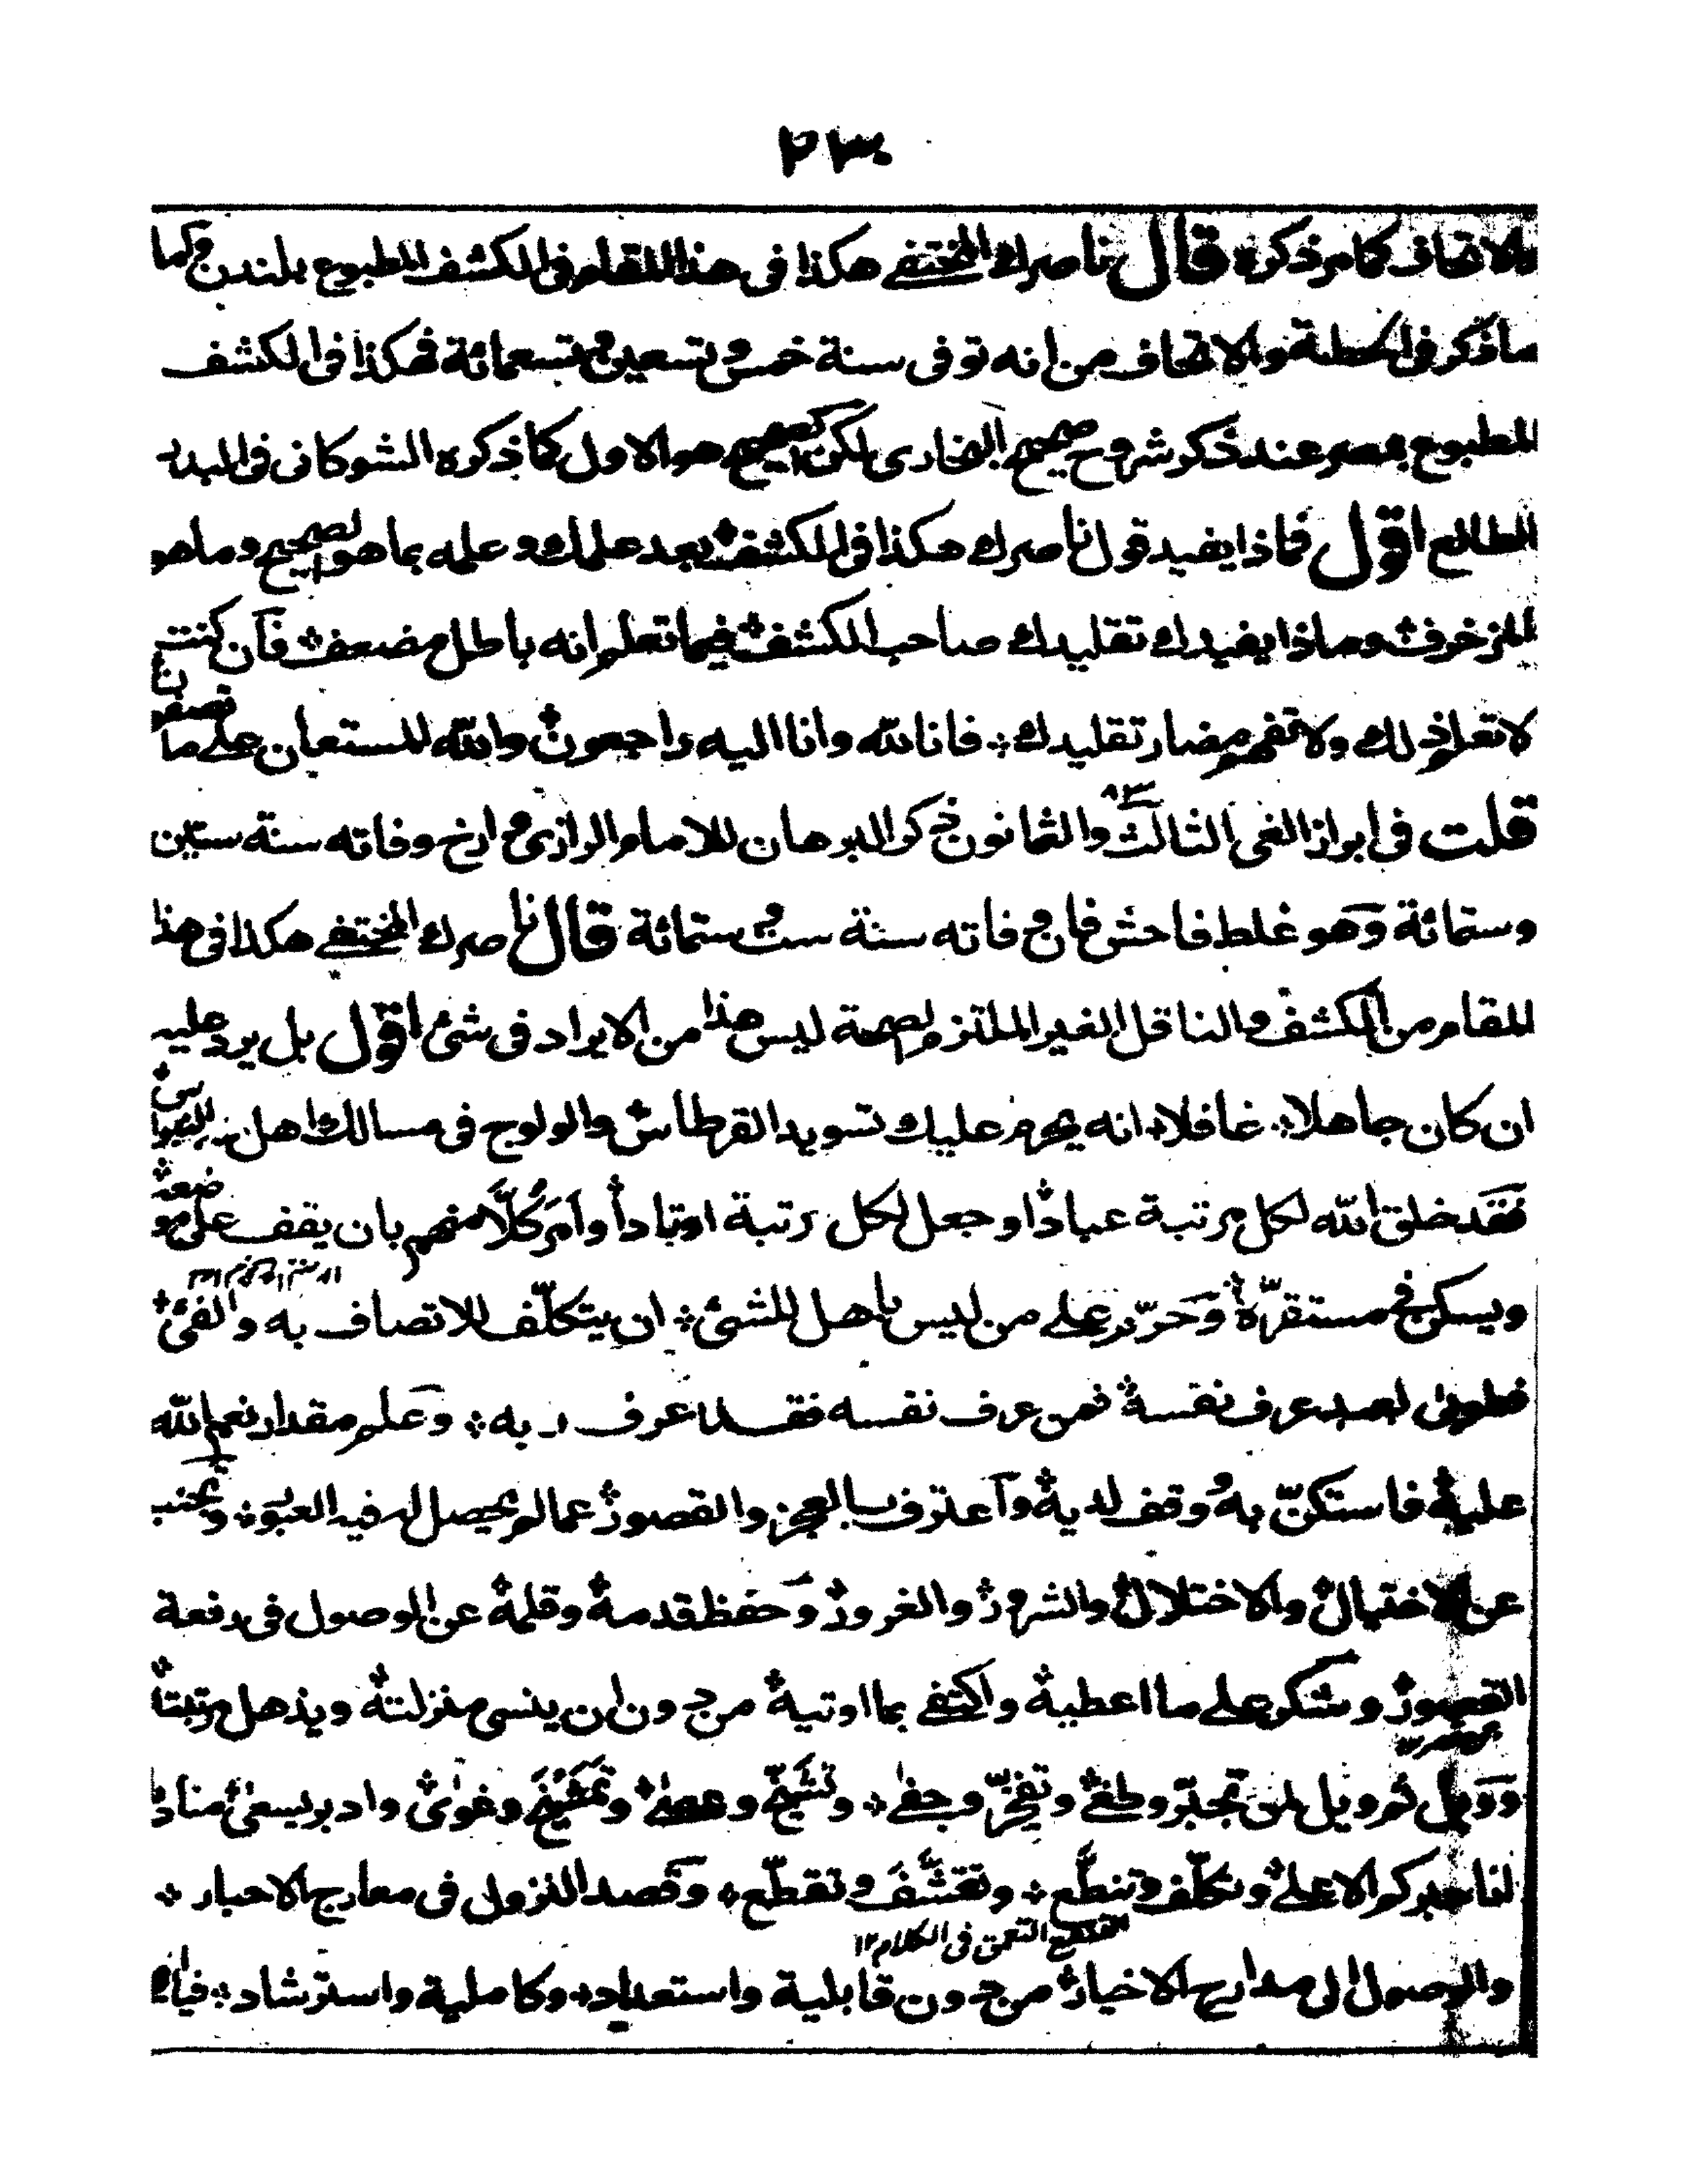 ٢٣٠
والاتحاف كما مر ذكره قال ناصرك المختفى هكذا فى هذا المقام فى الكشف المطبوع بلندن واما
ما ذكر فى الحطة والاتحاف من انه توفى سنة خمس وتسعين وتسعمائة فهكذا فى الكشف
المطبوع بمصر عند ذكر شروح صحيح البخارى لكن الصحيح هو الاول كما ذكره الشوكانى فى البدر
الطالع اقول فماذا يفيد قول ناصرك هكذا فى الكشف بعد علمك وعلمه بما هو الصحيح وما هو
المزخرف وماذا يفيدك تقليدك صاحب الكشف فيما تعلم انه باطل مضعف فان كنت
لا تعلم ذلك ولا تفهم مضار تقليدك فانا لله وانا اليه راجعون والله المستعان على ما تصفون
قلت فى ابراز الغى الثالث والثمانون ذكر البرهان للامام الرازى وارخ وفاته سنة ستين
٨٣
وستمائة وهو غلط فاحش فان وفاته سنة ست وستمائة قال ناصرك المختفى هكذا فى هذا
المقام من الكشف والناقل الغير الملتزم لصحة ليس هذا من الايراد فى شئ اقول بل يرد عليه
ان كان جاهلا غافلا انه يحرم عليك تسويد القرطاس والولوج فى مسالك اهل
فقد خلق الله لكل مرتبة عبادا وجعل لكل رتبة اوتادا وامر كلا منهم بان يقف على موضعه
ويسكن فى مستقره وحرم على من ليس باهل للشئ ان يتكلف للاتصاف به والفئ
فطوبى لعبد عرف نفسه فمن عرف نفسه فقد عرف ربه وعلم مقدار نعم الله
عليه فاستكن به وقف لديه واعترف بالعجز والقصور عما لم يحصل له فيه العبور وتجنب
عن الاختيال والاختلال والشرور والغرور وحفظ قدمه وقلمه عن الوصول فى دفعة
القصور وشكر على ما اعطيه واكتفى بما اوتيه من دون ان ينسى منزلته ويذهل مرتبته
وويل ثم ويل لمن تجبر وطغى وتفخر وجفى وتشيخ وعصى وتمشيخ وغوى وادبر يسعى مناديا
انا خيركم الاعلى وتكلف وتنطع وتقشف وتقطع وقصد النزول فى معارج الاحبار
التنطع التعمق فى الكلام ١٢
والوصول الى مدارج الاخيار من دون قابلية واستعداد وكاملية واسترشاد